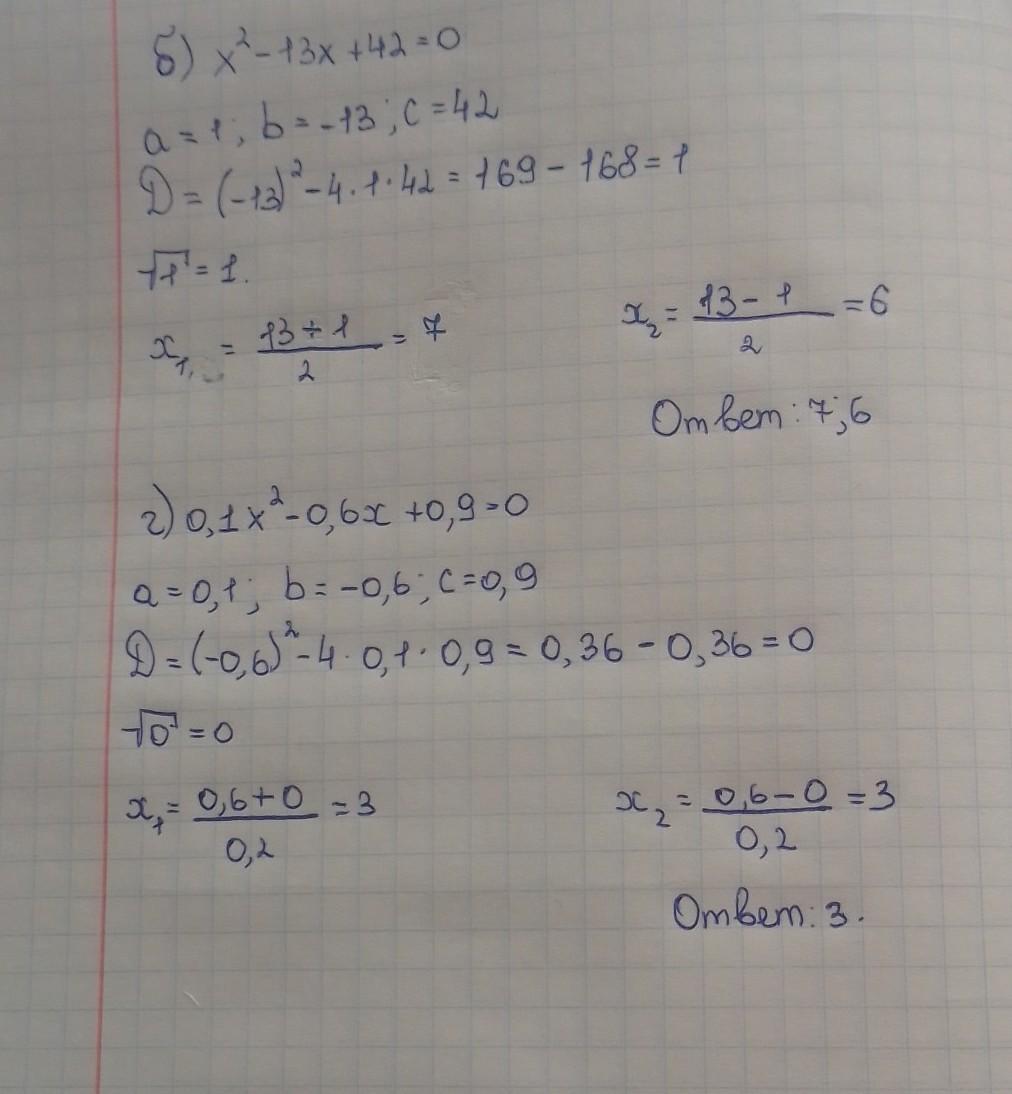 б) x² - 13x + 42 = 0
a = 1; b = -13; c = 42
D = (-13)² - 4·1·42 = 169 - 168 = 1
√1 = 1.
x₁ = (13 + 1)/2 = 7    x₂ = (13 - 1)/2 = 6
Ответ: 7; 6
г) 0,1x² - 0,6x + 0,9 = 0
a = 0,1; b = -0,6; c = 0,9
D = (-0,6)² - 4·0,1·0,9 = 0,36 - 0,36 = 0
√0 = 0
x₁ = (0,6 + 0)/0,2 = 3    x₂ = (0,6 - 0)/0,2 = 3
Ответ: 3.